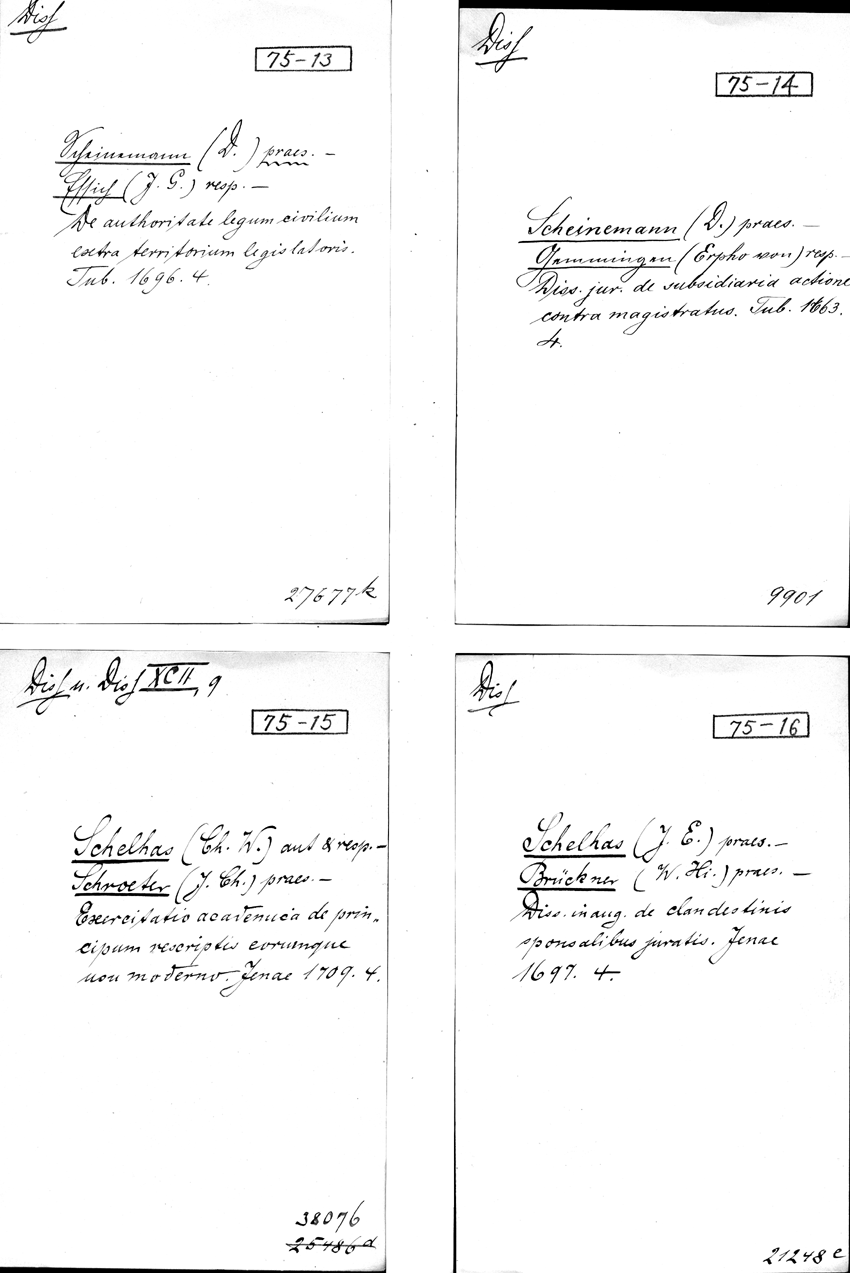 Diss
75-13
Scheinemann (D.) praes. —
Essich (J. G.) resp. —
De authoritate legum civilium
extra territorium legislatoris.
Tub. 1696. 4.
27677k
Diss
75-14
Scheinemann (D.) praes. —
Gemmingen (Erpho von) resp. —
Diss. jur. de subsidiaria actione
contra magistratus. Tub.
4.
9901
Diss u. Diss XCII, 9
75-15
Schelhas (Ch. W.) aut & resp. —
Schroeter (J. Ch.) praes. —
Exercitatio academica de prin„
cipum rescriptis eorumque
usu moderno. Jenae 1709. 4.
38076
25486d
Diss
75-16
Schelhas (J. E.) praes. —
Brückner (W. Hi.) praes. —
Diss. inaug. de clandestinis
sponsalibus juratis. Jenae
1697. 4.
21248e